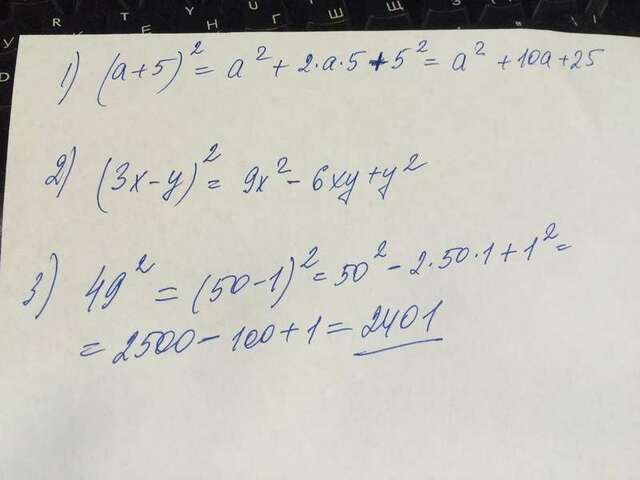 1) (a+5)² = a² + 2·a·5 + 5² = a² + 10a + 25
2) (3x-y)² = 9x² - 6xy + y²
3) 49² = (50-1)² = 50² - 2·50·1 + 1² =
= 2500 - 100 + 1 = 2401